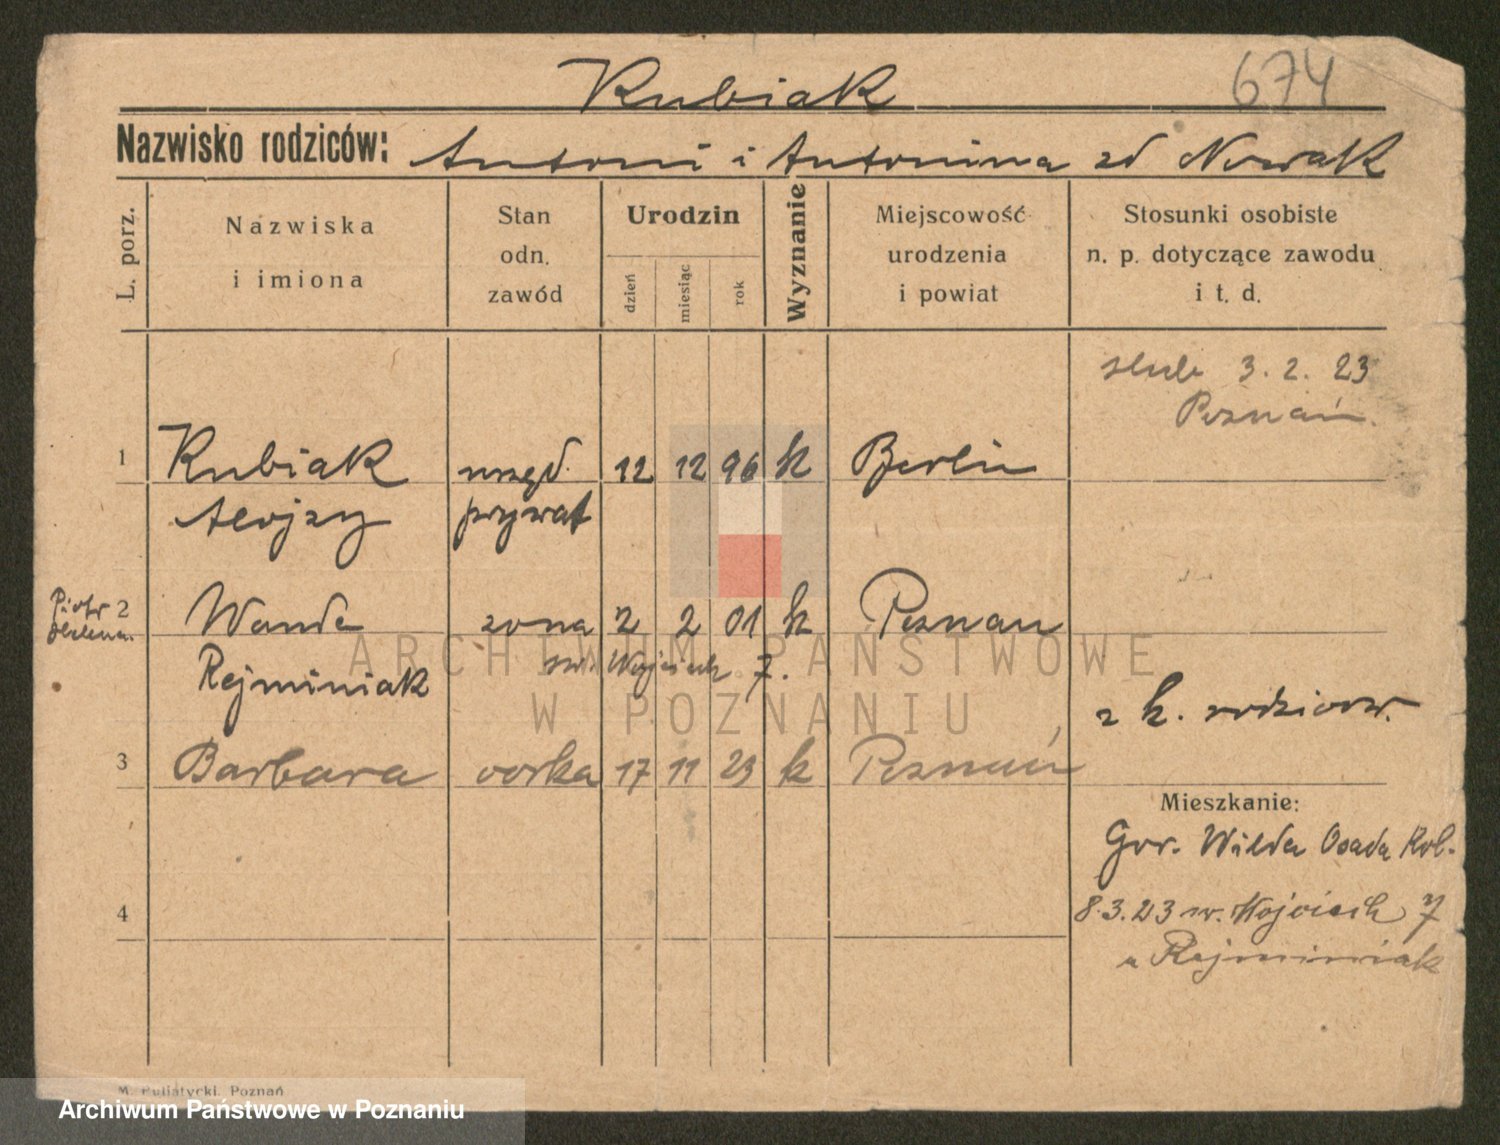 Kubiak
674
Nazwisko rodziców: Antoni i Antonina zd Nowak
L. porz.
Nazwiska i imiona
Stan odn. zawód
Urodzin
dzień
miesiąc
rok
Wyznanie
Miejscowość urodzenia i powiat
Stosunki osobiste n. p. dotyczące zawodu i t. d.
ślub 3.2.23
Poznań.
1 Kubiak urzęd. 12 12 96 k Berlin
Alojzy prywat
Piotr
Helena
2 Wanda żona 2 2 01 k Poznan
Rejminiak św. Wojciech 7.
z k. rodziców.
3 Barbara córka 17 11 23 k Poznań
Mieszkanie:
Gór. Wilda Osada Rol.
4
8.3.23 św. Wojciech 7
u Rejminiak
M. Putiatycki. Poznań
ARCHIWUM PAŃSTWOWE
W POZNANIU
Archiwum Państwowe w Poznaniu